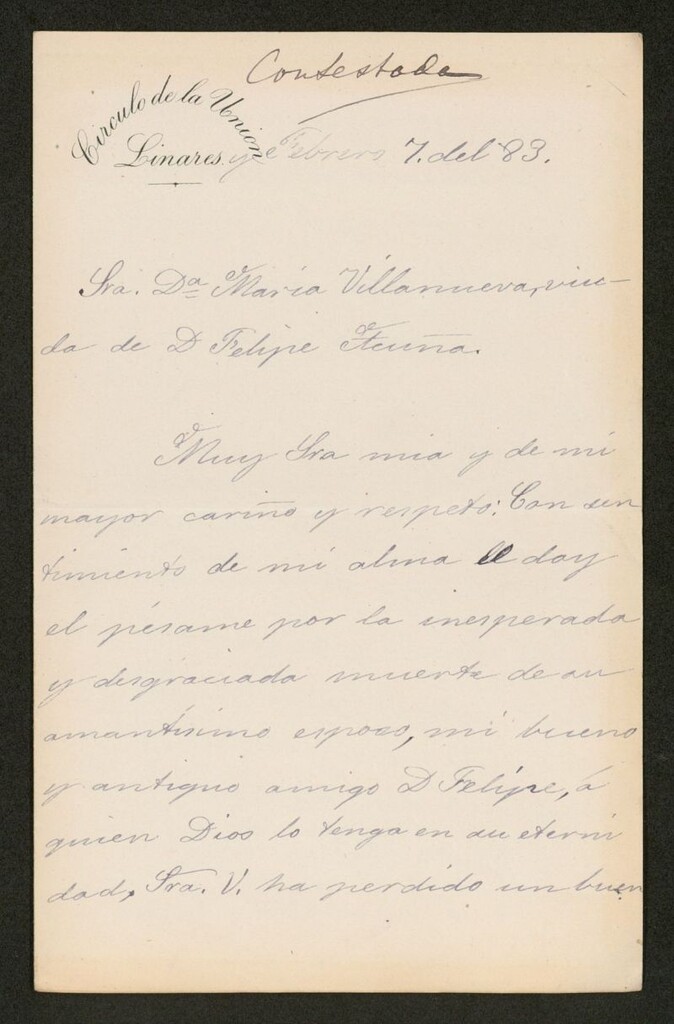 Contestada
Circulo de la Union
Linares. y Febrero 7. del 83.
Sra. Dª Maria Villanueva, viu-
da de D Felipe Acuña.
Muy Sra mia y de mi
mayor cariño y respeto: Con sen
timiento de mi alma le doy
el pésame por la inesperada
y desgraciada muerte de su
amantísimo esposo, mi bueno
y antiguo amigo D Felípe, á
quien Dios lo tenga en su eterni
dad, Sra. V. ha perdido un buen